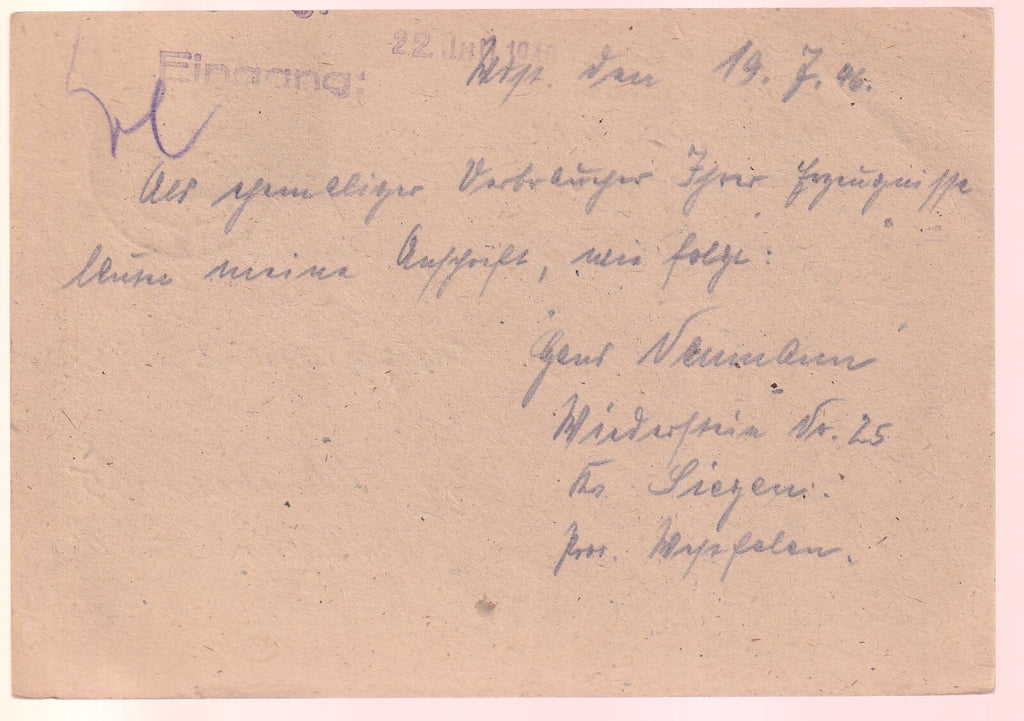 22. Juli 1946
Eingang:
Wdst. den 19. 7. 46.
Als ehemaliger Verbraucher Ihrer Erzeugnisse
meine Anschrift, wie folgt:
Hans Neumann
Wiederstein Nr. 25
Krs. Siegen.
Prov. Westfalen.